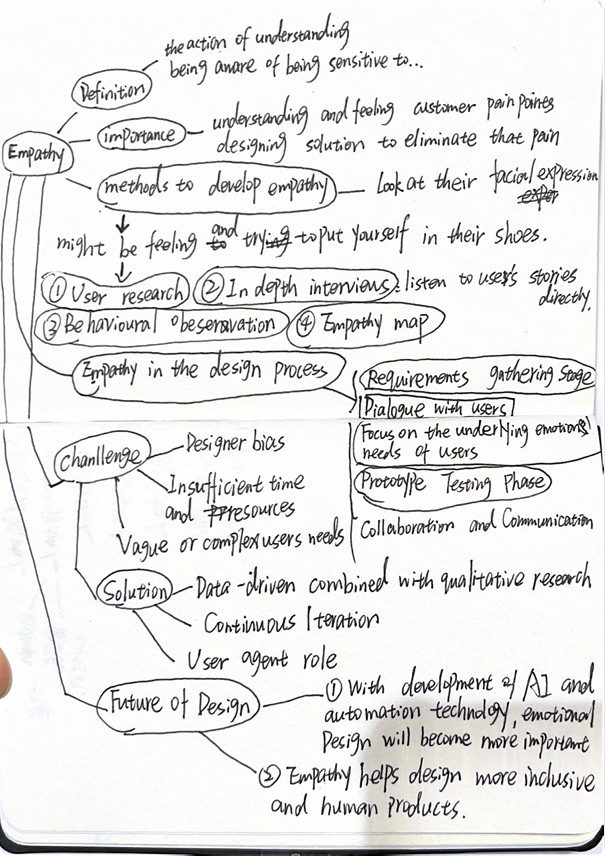 the action of understanding
being aware of being sensitive to...
Definition
Empathy
importance
understanding and feeling customer pain poines
designing solution to eliminate that pain
methods to develop empathy
Look at their facial expression
might be feeling and trying to put yourself in their shoes.
① User research
② In depth interviews: listen to user's stories
directly.
③ Behavioural obeseravation
④ Empathy map
Empathy in the design process
Requirements gathering stage
Dialogue with users
Focus on the underlying emotions/
needs of users
Prototype Testing Phase
Collaboration and Communication
Chanllenge
Designer bias
Insufficient time
and resources
Vague or complex users needs
Solution
Data-driven combined with qualitative research
Continuous Iteration
User agent role
Future of Design
① With development of AI and
automation technology, emotional
Design will become more important
② Empathy helps design more inclusive
and human products.